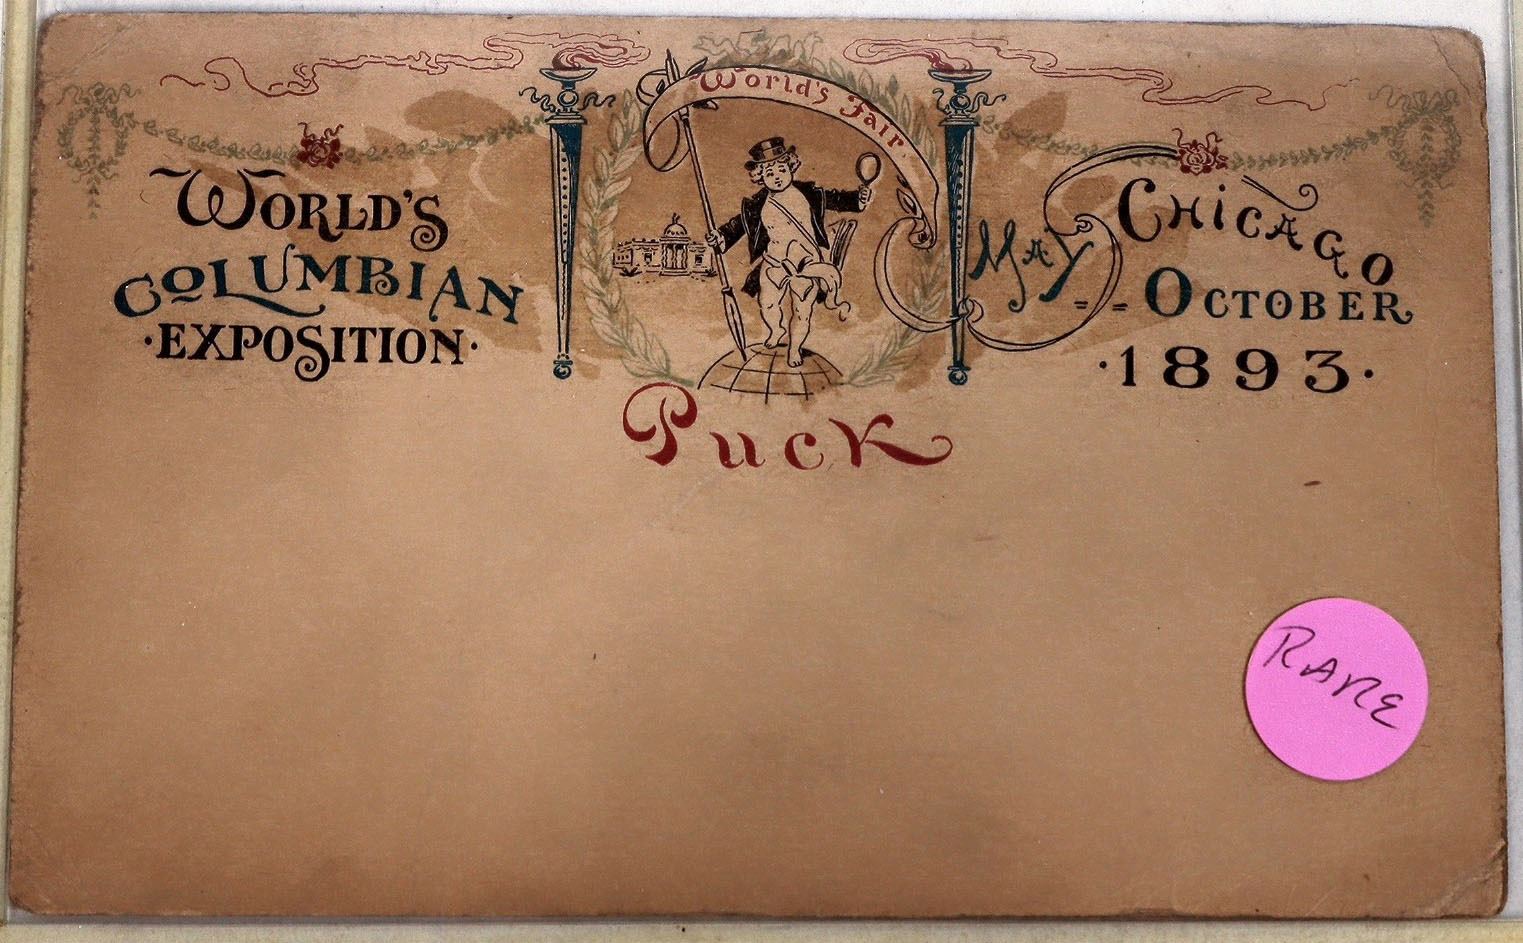 World's Fair
WORLD'S
COLUMBIAN
·EXPOSITION·
CHICAGO
MAY = = OCTOBER
·1893·
PUCK
RARE